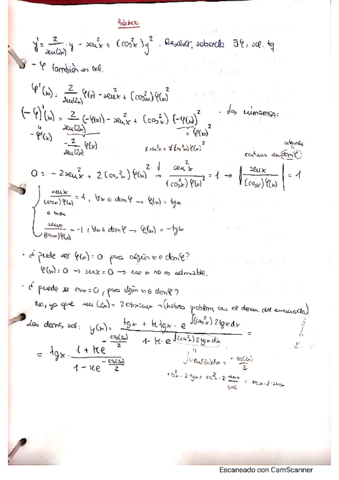 Riccati
y' = 2/sen(2x) · y - sen²x + (cos²x) y². Resolver, sabiendo ∃φ, sol. tq
-φ también es sol.
φ'(x) = 2/sen(2x) φ(x) - sen²x + (cos²x) φ(x)²
(-φ)'(x) = 2/sen(2x) (-φ(x)) - sen²x + (cos²x) (-φ(x))² . Las sumamos:
-φ'(x) = φ(x)²
-2/sen(2x) φ(x)
0 = -2sen²x + 2(cos²x) φ(x)² → sen²x/((cos²x) φ(x)²) = 1 → |senx/((cosx) φ(x))| = 1
senx/((cosx) φ(x)) = 1, ∀x ∈ domφ → φ(x) = tgx
o bien
senx/((cosx) φ(x)) = -1, ∀x ∈ domφ → φ(x) = -tgx
· ¿puede ser φ(x) = 0 para algún x ∈ domφ?
φ(x) = 0 → senx = 0 → ese x no es admisible.
· ¿puede ser cosx = 0, para algún x ∈ domφ?
No, ya que sen(2x) = 2cosxsenx → (habría problema con el denom. del enunciado)
Las demás sol: y(x) = (tgx + K tgx · e^∫(cos²x) 2tgx dx) / (1 - K e^∫(cos²x) 2tgx dx) =
= tgx · (1 + K e^(-cos(2x)/2)) / (1 - K e^(-cos(2x)/2))
∫sen(2x)dx = -cos(2x)/2
Escaneado con CamScanner